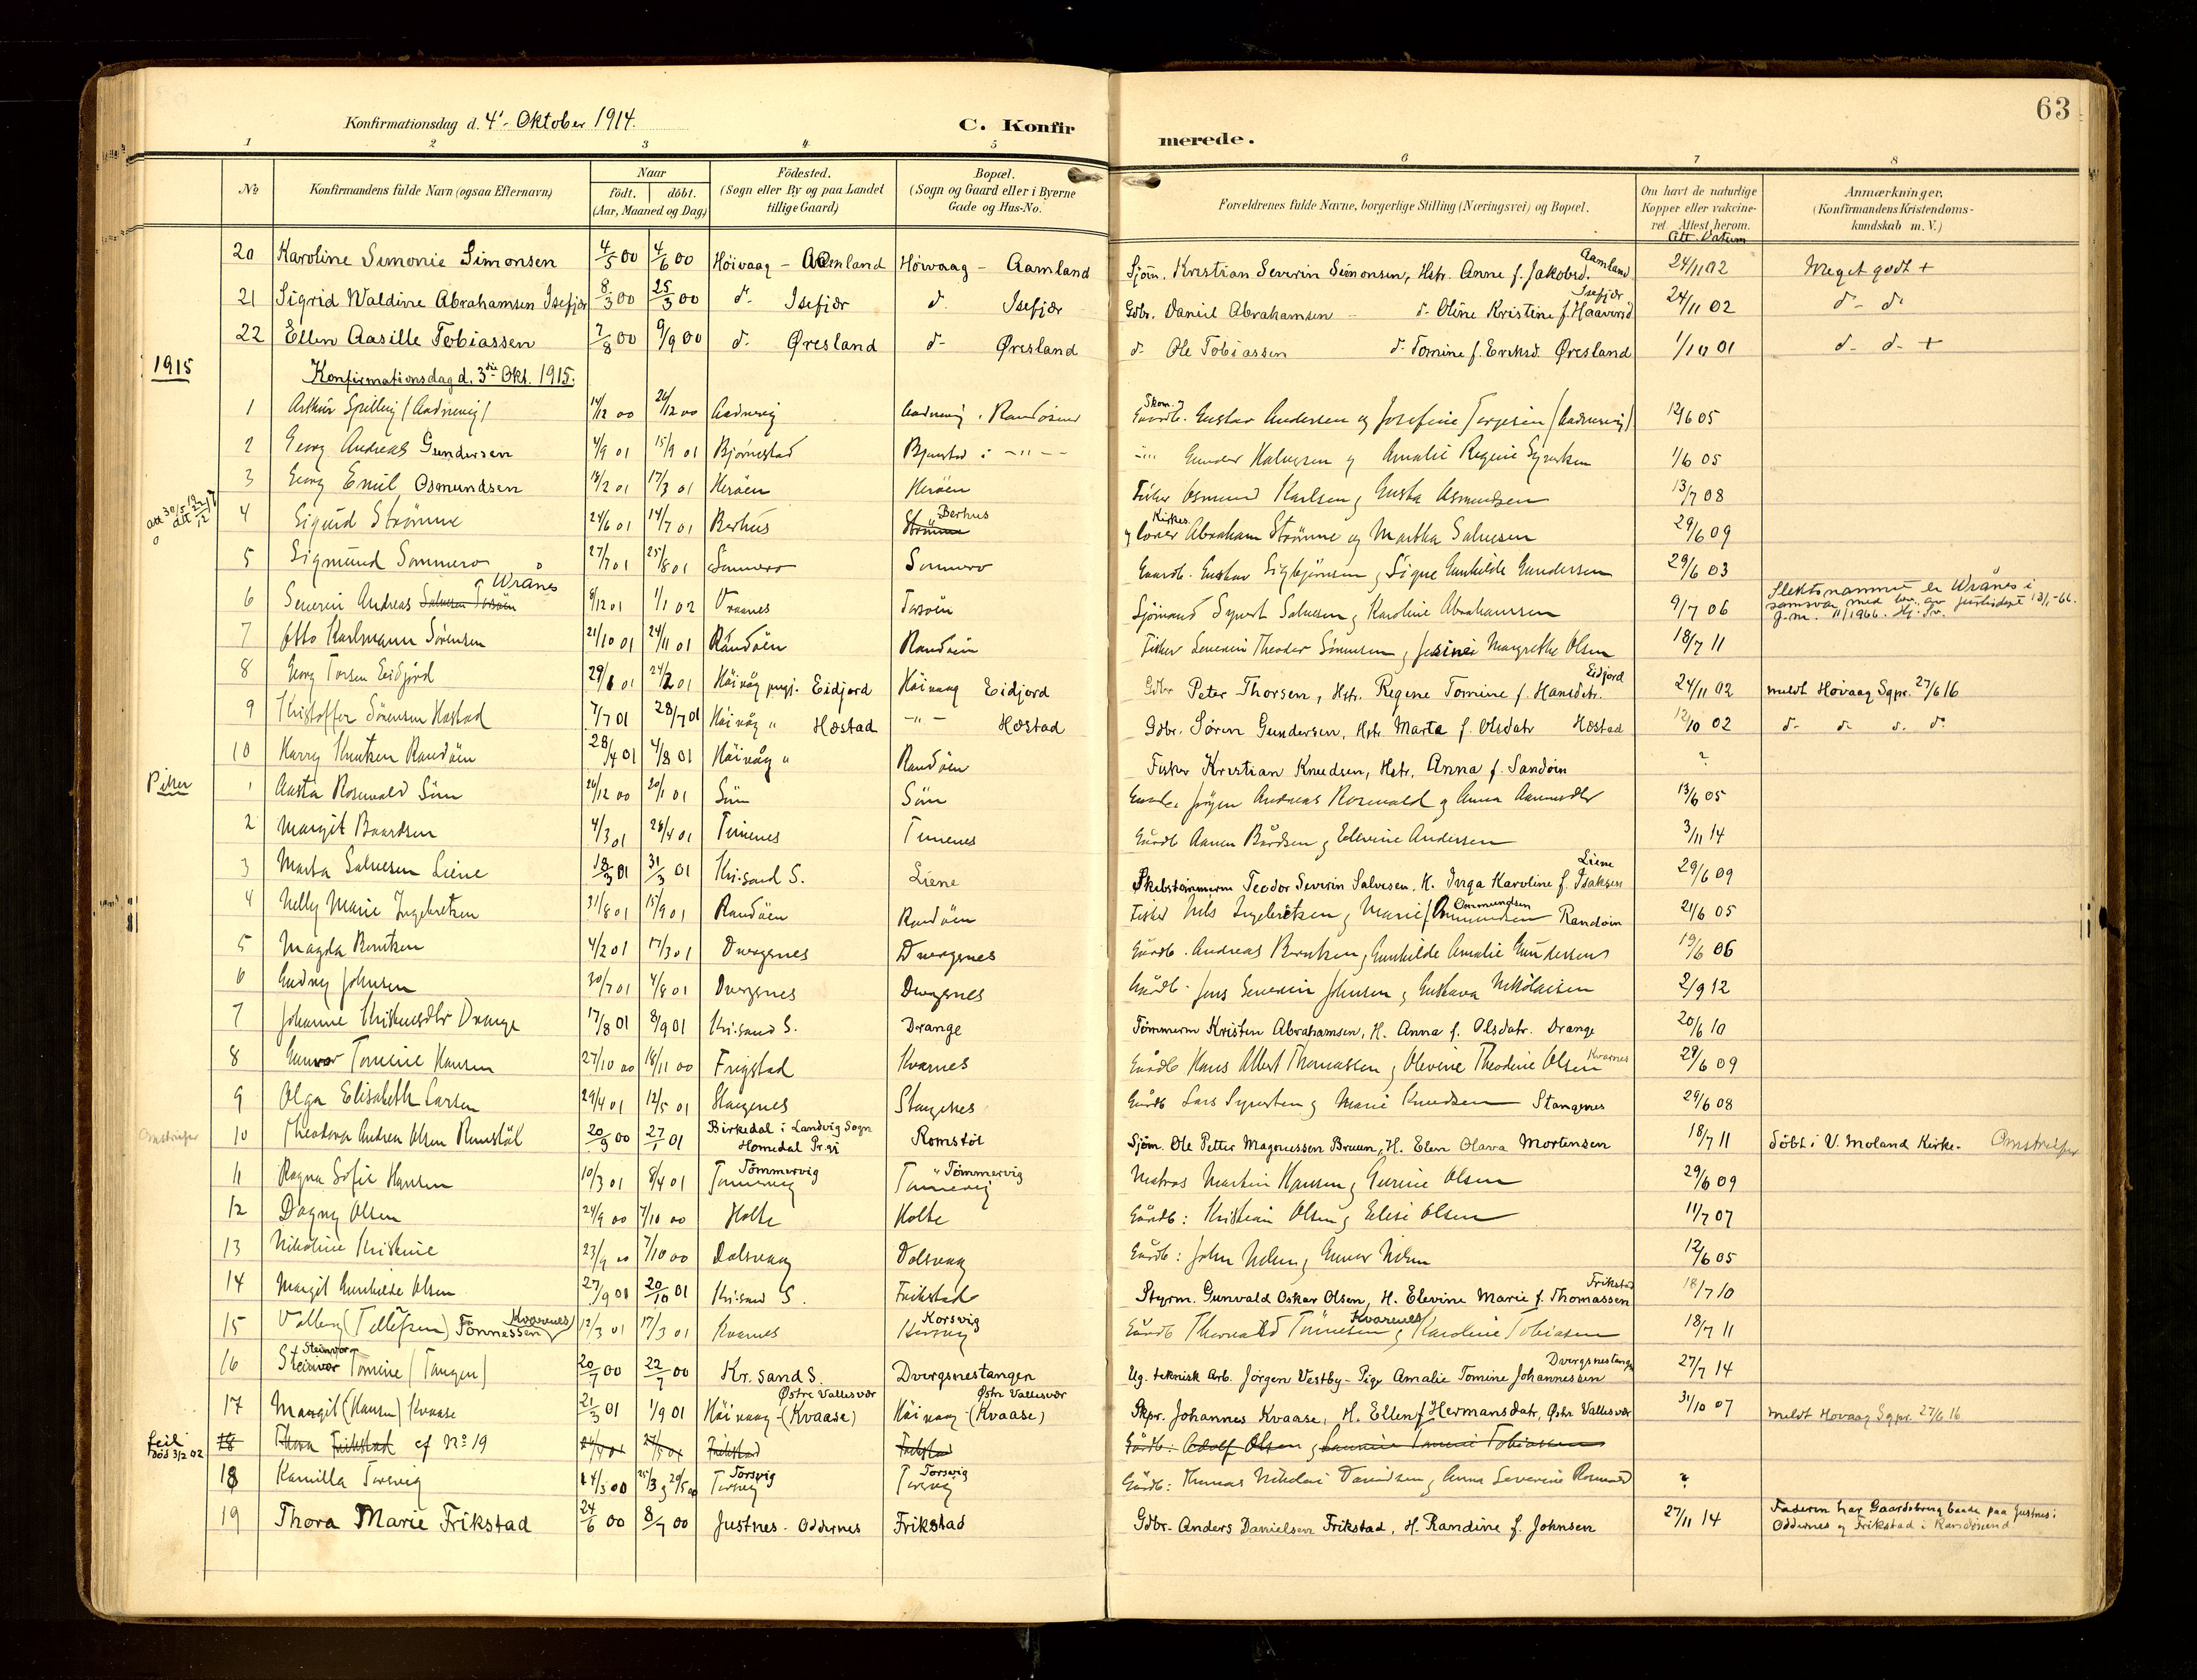 63
Konfirmationsdag d. 4' - Oktober 1914.
C. Konfir merede.
1 2 3 4 5 6 7 8
No Konfirmandens fulde Navn (ogsaa Efternavn) Naar født. døbt. (Aar, Maaned og Dag) Fødested. (Sogn eller By og paa Landet tillige Gaard) Bopæl. (Sogn og Gaard eller i Byerne Gade og Hus-No. Forældrenes fulde Navne, borgerlige Stilling (Næringsvei) og Bopæl. Om havt de naturlige Kopper eller vakcineret. Attest herom. Att. Datum Anmærkninger, (Konfirmandens Kristendomskundskab m. V.)
20 Karoline Simonie Simonsen 4/5 00 4/6 00 Høivaag - Aamland Høivaag - Aamland Sjøm. Kristian Severin Simonsen, Hstr. Anne f. Jakobsd. Aamland 24/11 02 Meget godt +
21 Sigrid Waldine Abrahamsen Isefjær 8/3 00 25/3 00 d. Isefjær d. Isefjær Gdbr. Daniel Abrahamsen - d. Oline Kristine f. Haavorsd Isefjær 24/11 02 d - d.
22 Ellen Aasille Tobiassen 7/8 00 9/9 00 d. Øresland d. Øresland d. Ole Tobiassen d. Tomine f. Eriksd. Øresland 1/10 01 d - d - +
1915
Konfirmationsdag d. 3die Okt. 1915.
1 Arthur Spilling (Aadnevig) 14/12 00 26/12 00 Aadnevig Aadnevig i Randøsund Skom. og Gaardb. Gustav Andersen og Josefine Terjesen (Aadnevig) 12/6 05
2 Georg Andreas Gundersen 4/9 01 15/9 01 Bjørnestad Bjørnstad i -"- -"- Gunder Halvorsen og Amalie Regine 1/6 05
3 Georg Emil Osmundsen 17/3 01 Herøen Herøen Fisker Osmund Karlsen og Gusta Asmundsen 13/7 08
4 Sigurd Strømme 24/6 01 14/7 01 Berhus Strømme Berhus Kirkes. Abraham Strømme og Martha Salvesen 29/6 09
5 Sigmund Sømmero 27/7 01 25/8 01 Sømmero Sommero Gaardb. Gustav Sigbjørnsen og Signe Gunhilde Gundersen 29/6 03
6 Severin Andreas Salvesen Torsøen Wrånes 8/12 01 1/1 02 Vraanes Torsøen Sjømand Syvert Salvesen og Karoline Abrahamsen 9/7 06 Slektsnamnet er Wrånes i samsvar med bev. av justisdept 13/1-66. g.m. 11/1966.
7 Otto Karlmann Sørensen 21/10 01 24/11 01 Randøen Randøen Fisker Severin Theodor Sørensen og Jesine Margrethe Olsen 18/7 11
8 Georg Torsen Eidjord 29/6 01 24/2 01 Høivåg prgj. Eidjord Høivaag Eidjord Gdbr Peter Thorsen, Hstr. Regine Tomine f. Hansdtr. Eidjord 24/11 02 meldt Høvaag Sgpr. 27/6 16
9 Kristoffer Sørensen Hæstad 7/7 01 28/7 01 Høivåg " Hæstad -"- Hæstad Gdbr. Søren Gundersen, Hstr. Marta f. Olsdatr Hæstad 12/10 02 d - d. d. d.
10 Harry Knutsen Randøen 28/4 01 4/8 01 Høivåg " Randøen Fisker Kristian Knudsen, Hstr. Anna f. Sandøen ?
Piker
1 Aasta Rosenvald Søm 26/12 00 20/1 01 Søm Søm Jørgen Andreas Rosenvald og Anna 13/6 05
2 Margit Baardsen 4/3 01 28/4 01 Timenes Timenes Gårdb Aanen Bårdsen og Edevine Andersen 3/11 14
3 Marta Salvesen Liene 18/3 01 31/3 01 Kr.sand S. Liene Skibstømmerm Teodor Severin Salvesen, H. Inga Karoline f. Isaksen Liene 29/6 09
4 Nelly Marie Ingebretsen 31/8 01 15/9 01 Randøen Randøen Fisker Nils Ingebretsen og Marie f. Ommundsen Randøen 21/6 05
5 Magda Berntsen 4/2 01 17/3 01 Dvergsnes Dvergsnes Gårdb. Andreas Berntsen, Gunhilde Amalie Gundersen 19/6 06
6 Gudny Johnsen 30/7 01 4/8 01 Dvergsnes Dvergsnes Gårdb. Jens Severin Johnsen og Gustava Nikolaisen 2/9 12
7 Johanne Kristensdtr Drange 17/8 01 8/9 01 Kr.sand S. Drange Tømmerm Kristen Abrahamsen, H. Anna f. Olsdatr. Drange 20/6 10
8 Gunvor Tomine Hansen 27/10 00 18/11 00 Frigstad Kvarnes Gårdb Hans Albert Thomassen og Olevine Theodine Olsen Kvarnes 29/6 09
9 Olga Elisabeth Larsen 29/4 01 12/5 01 Stangenes Stangenes Gårdb Lars Syvertsen og Marie Knudsen Stangenes 29/6 08
10 Theodora Andrea Olsen Romstøl 20/9 00 27/1 01 Birkedal i Landvig Sogn Homedal Pr.gj Romstøl Sjøm. Ole Petter Magnussen Bruun, H. Elen Olava Mortensen 18/7 11 døbt i V. Moland Kirke.
11 Ragna Sofie Hansen 10/3 01 8/4 01 Tømmervig Tømmervig Matros Martin Hansen og Gurine Olsen 29/6 09
12 Dagny Olsen 24/9 00 7/10 00 Holte Holte Gårdb: Kristian Olsen og Elise Olsen 11/7 07
13 Nikoline Kristine 23/9 00 7/10 00 Dalsvaag Dalsvaag Gårdb: John Nilsen, Gunvor Nilsen 12/6 05
14 Margit Gunhilde Olsen 27/9 01 20/10 01 Kr.sand S. Frikstad Styrm. Gunvald Oskar Olsen, H. Elevine Marie f. Thomassen Frikstad 18/7 10
15 Valborg (Tellefsen) Tønnessen Kvarenes 12/3 01 17/3 01 Kvarnes Korsvig Gårdb Thorvald Tønnesen Kvarenes og Karoline Tobiasen 18/7 11
16 Steinvor Steinvor Tomine (Tangen) 20/7 00 22/7 00 Kr.sand S. Dvergsnestangen Ug. teknisk Arb. Jørgen Vestby - Pige Amalie Tomine Johannessen Dvergsnestangen 27/7 14
17 Margit (Hansen) Kvaase 21/3 01 1/9 01 Høivaag - (Kvaase) Østre Vallesvær Høivaag - (Kvaase) Østre Vallesvær Skpr. Johannes Kvaase, H. Ellen f. Hermansdatr, Østre Vallesvær 31/10 07 meldt Høvaag Sgpr. 27/6 16
feil død 3/2 02 18 Thora Frikstad cf No 19 Frikstad Frikstad Gårdb: Adolf Olsen og Tobiassen
18 Kamilla Torsvig 24/3 00 Torsvig Torsvig Gårdb: Thomas Nikolai Danielsen og Anna Severine ?
19 Thora Marie Frikstad 24/6 00 8/7 00 Justnes - Oddernes Frikstad Gdbr. Anders Danielsen Frikstad, H. Randine f. Johnsen 27/11 14 Faderen har Gaardsbrug baade paa Justnes i Oddernes og Frikstad i Randøsund